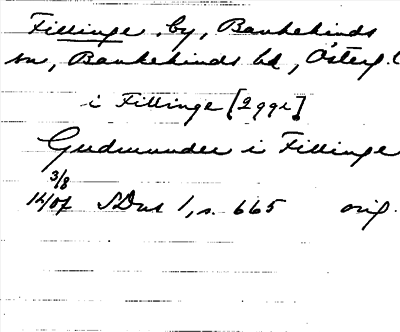 Fillinge, by, Bankekinds
sn, Bankekinds hd, Österg.
i Fillinge [2 ggr]
Gudmundee i Fillinge
3/8
1407 SDns 1, s. 665 orig.